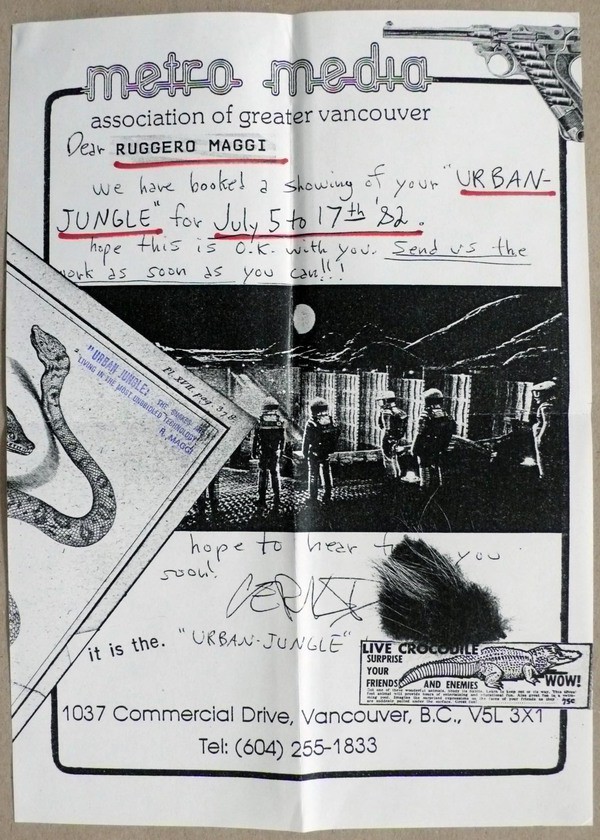 metro media
association of greater vancouver
Dear RUGGERO MAGGI
we have booked a showing of your "URBAN-
JUNGLE" for July 5 to 17th '82.
hope this is O.K. with you. Send us the
work as soon as you can!!!
Pl. XVII. pag. 378
"URBAN JUNGLE:
LIVING IN THE MOST UNBRIDLED TECHNOLOGY"
R. MAGGI
hope to hear you
soon!
it is the. "URBAN-JUNGLE"
LIVE CROCODILE
SURPRISE
YOUR
FRIENDS AND ENEMIES
WOW!
75¢
1037 Commercial Drive, Vancouver, B.C., V5L 3X1
Tel: (604) 255-1833